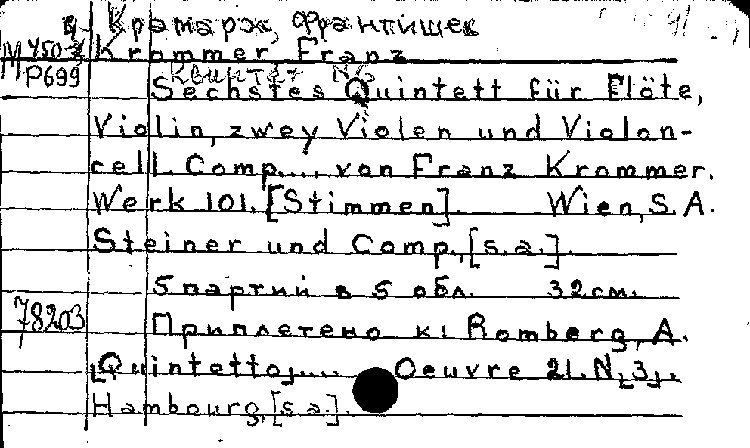 Крамарж, Франтишек
М 450-2 Krommer Franz
Р699 Квинтет №6
Sechstes Quintett für Flöte,
Violin, zwey Violen und Violon-
cell. Comp.... von Franz Krommer.
Werk 101. [Stimmen]. Wien, S.A.
Steiner und Comp., [s.a.].
5 партий в 5 обл. 32 см.
78203 Приплетено к: Romberg, A.
[Quintetto].... Oeuvre 21. N[3].
Hambourg, [s a.].